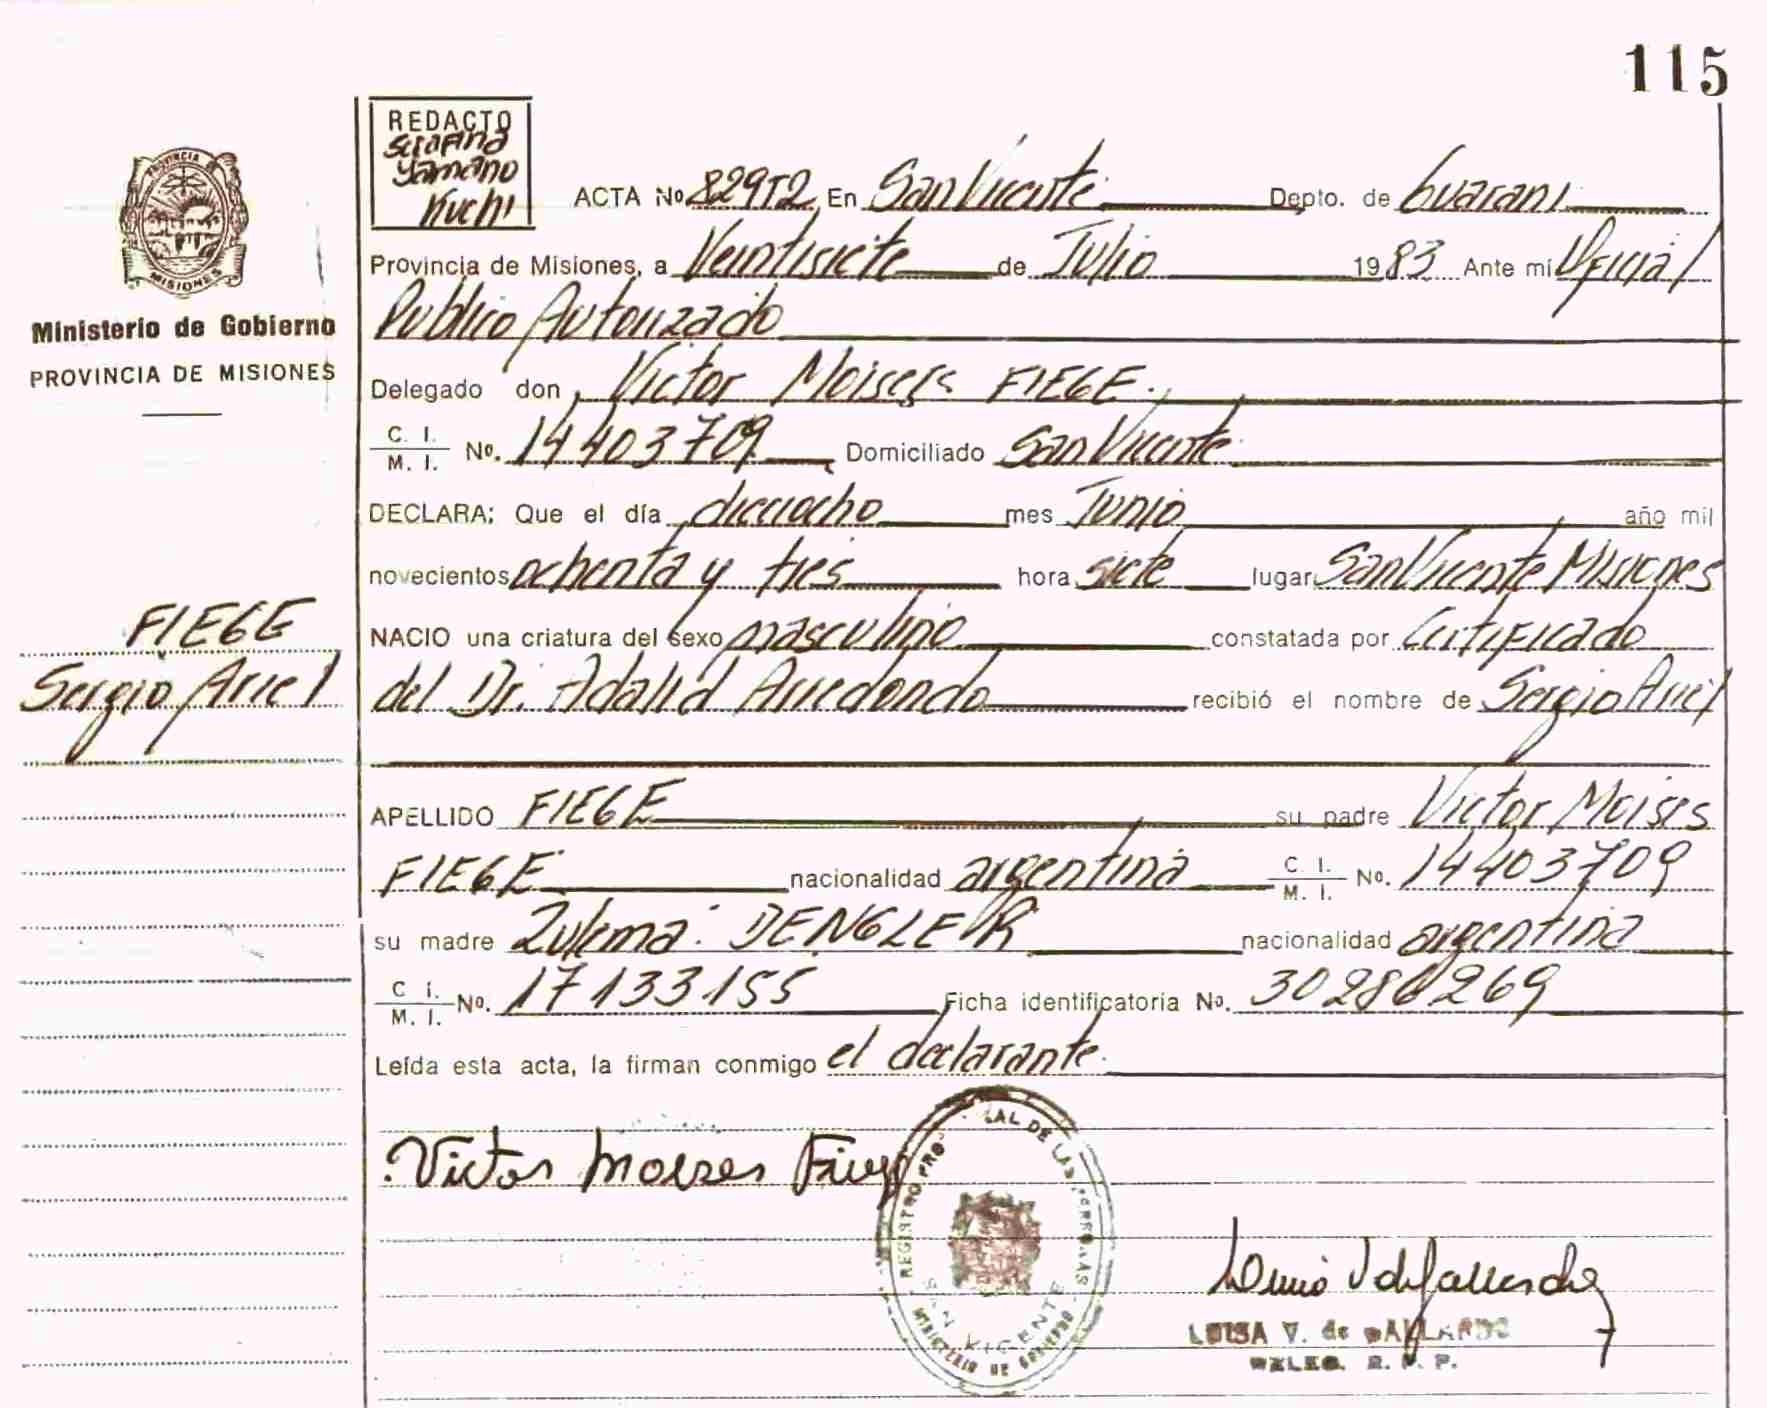 115
REDACTO
Serafina
Yamano
Kuchi
PROVINCIA DE
MISIONES
Ministerio de Gobierno
PROVINCIA DE MISIONES
ACTA No 829T2 En San Vicente Depto. de Guarani
Provincia de Misiones, a Veintisiete de Julio 1983 Ante mi Oficial
Publico Autorizado
Delegado don Victor Moises FIEGE.
C. I.
M. I. No. 14403709 Domiciliado San Vicente
DECLARA: Que el día dieciocho mes Junio año mil
novecientos ochenta y tres hora siete lugar San Vicente Misiones
NACIO una criatura del sexo masculino constatada por Certificado
del Dr. Adalid Arredondo recibió el nombre de Sergio Ariel
FIEGE
Sergio Ariel
APELLIDO FIEGE su padre Victor Moises
FIEGE nacionalidad argentina C. I.
M. I. No. 14403709
su madre Zulema: DENGLER nacionalidad argentina
C. I.
M. I. No. 17133155 Ficha identificatoria No. 30286269
Leída esta acta, la firman conmigo el declarante.
Victor Moises
REGISTRO PRO AL DE LAS PERSONAS
SAN VICENTE
MINISTERIO DE GOBIERNO
LUISA V. de GALLARDO
DELEG. R. P. P.